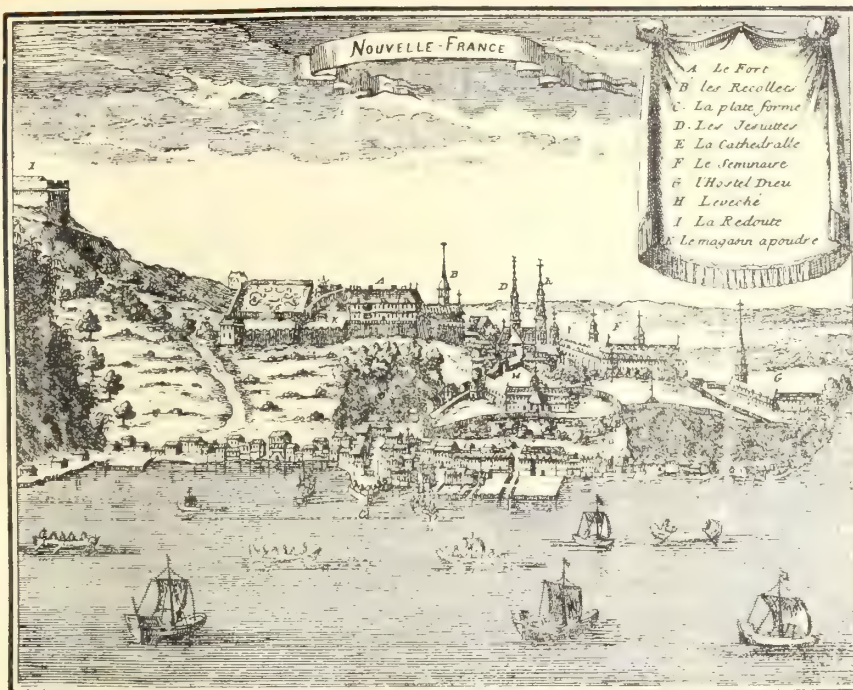 NOUVELLE-FRANCE
A Le Fort
B les Recollets
C La plate forme
D. Les Jesuittes
E La Cathedralle
F Le Seminaire
G l'Hostel Dieu
H Leveché
I La Redoute
K Le magasin a poudre
I
A
B
D
K
F
H
G
C